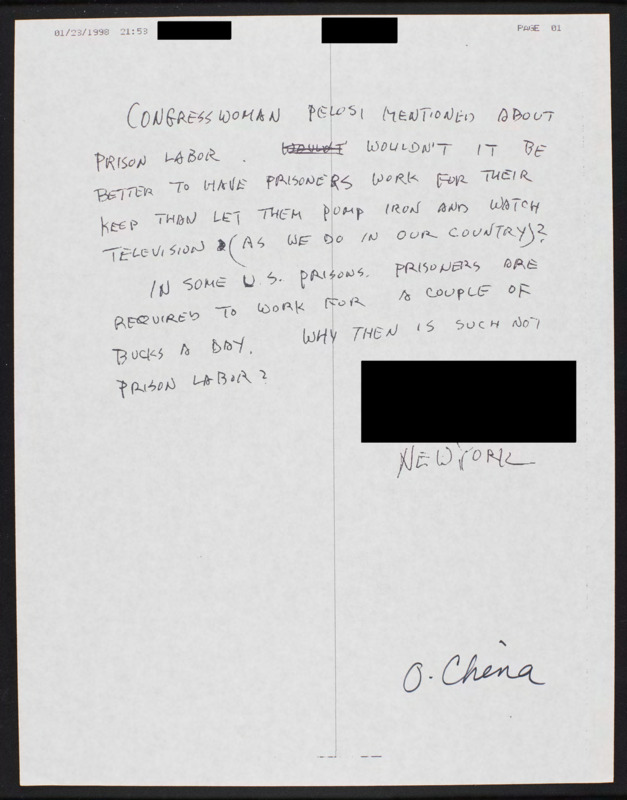 01/23/1998 21:53 PAGE 01
CONGRESSWOMAN PELOSI MENTIONED ABOUT
PRISON LABOR. WOULDN'T IT BE
BETTER TO HAVE PRISONERS WORK FOR THEIR
KEEP THAN LET THEM PUMP IRON AND WATCH
TELEVISION (AS WE DO IN OUR COUNTRY)?
IN SOME U.S. PRISONS. PRISONERS ARE
REQUIRED TO WORK FOR A COUPLE OF
BUCKS A DAY. WHY THEN IS SUCH NOT
PRISON LABOR?
NEW YORK
O. China